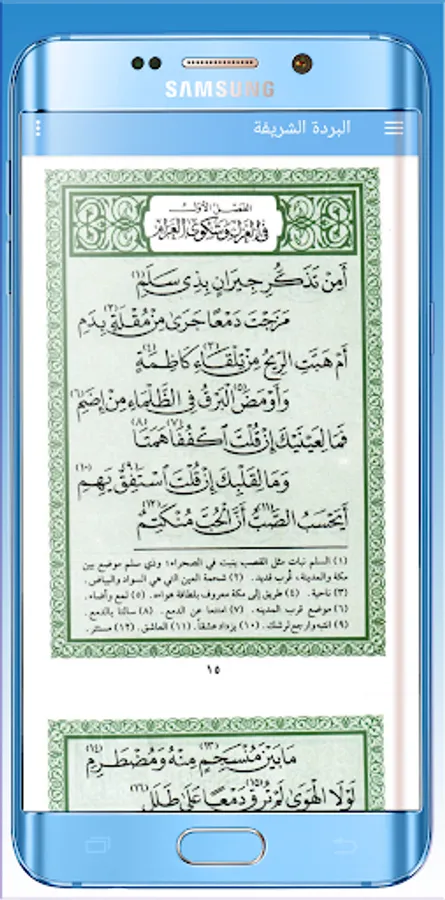 SAMSUNG
البردة الشريفة
الفصل الأول
في الغزل وشكوى الغرام
أَمِنْ تَذَكُّرِ جِيرَانٍ بِذِي سَلَمِ (١)
مَزَجْتَ دَمْعًا جَرَى مِنْ مُقْلَةٍ (٢) بِدَمِ
أَمْ هَبَّتِ الرِّيحُ مِنْ تِلْقَاءِ (٣) كَاظِمَةٍ (٤)
وَأَوْمَضَ (٥) الْبَرْقُ فِي الظَّلْمَاءِ مِنْ إِضَمِ (٦)
فَمَا لِعَيْنَيْكَ إِنْ قُلْتَ اكْفُفَا (٧) هَمَتَا (٨)
وَمَا لِقَلْبِكَ إِنْ قُلْتَ اسْتَفِقْ (٩) يَهِمِ (١٠)
أَيَحْسَبُ الصَّبُّ (١١) أَنَّ الْحُبَّ مُنْكَتِمٌ (١٢)
(١) السلم نبات مثل القصب ينبت في الصحراء؛ وذي سلم موضع بين
مكة والمدينة، قُرب قديد. (٢) شحمة العين التي هي السواد والبياض.
(٣) ناحية. (٤) طريق إلى مكة معروف بلطافة هواءه. (٥) لمع وأضاء.
(٦) موضع قرب المدينه. (٧) امتنعا عن الدمع. (٨) سالتا بالدمع.
(٩) انتبه وارجع لرشدك. (١٠) يزداد عشقاً. (١١) العاشق. (١٢) مستتر.
١٥
مَا بَيْنَ مُنْسَجِمٍ (١٣) مِنْهُ وَمُضْطَرِمِ (١٤)
لَوْلَا الْهَوَى لَمْ تُرِقْ (١٥) دَمْعًا عَلَى طَلَلٍ (١٦)